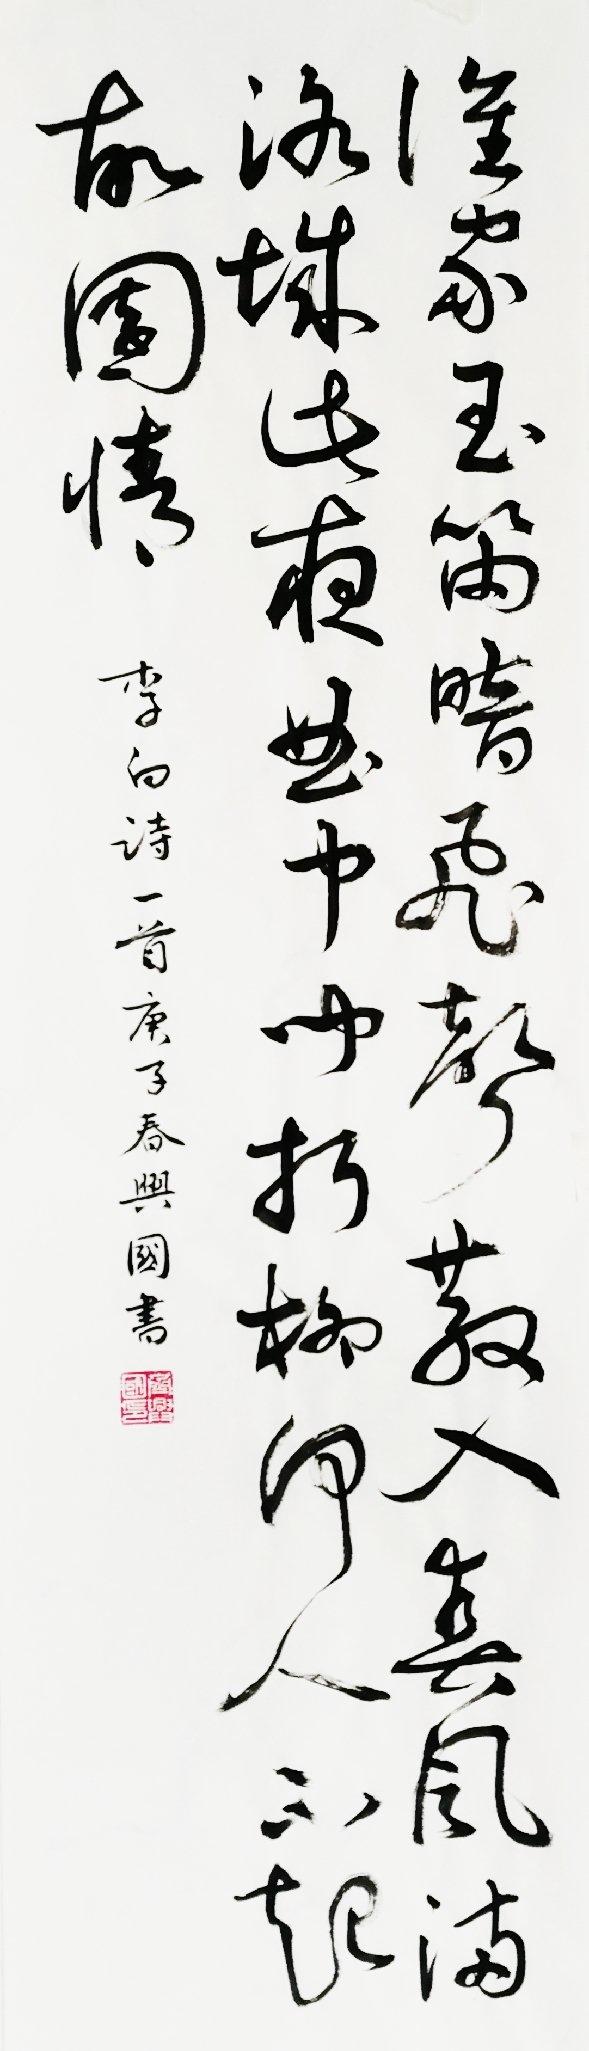 誰家玉笛暗飛聲散入春風滿
洛城此夜曲中聞折柳何人不起
故園情
李白詩一首庚子春興國書